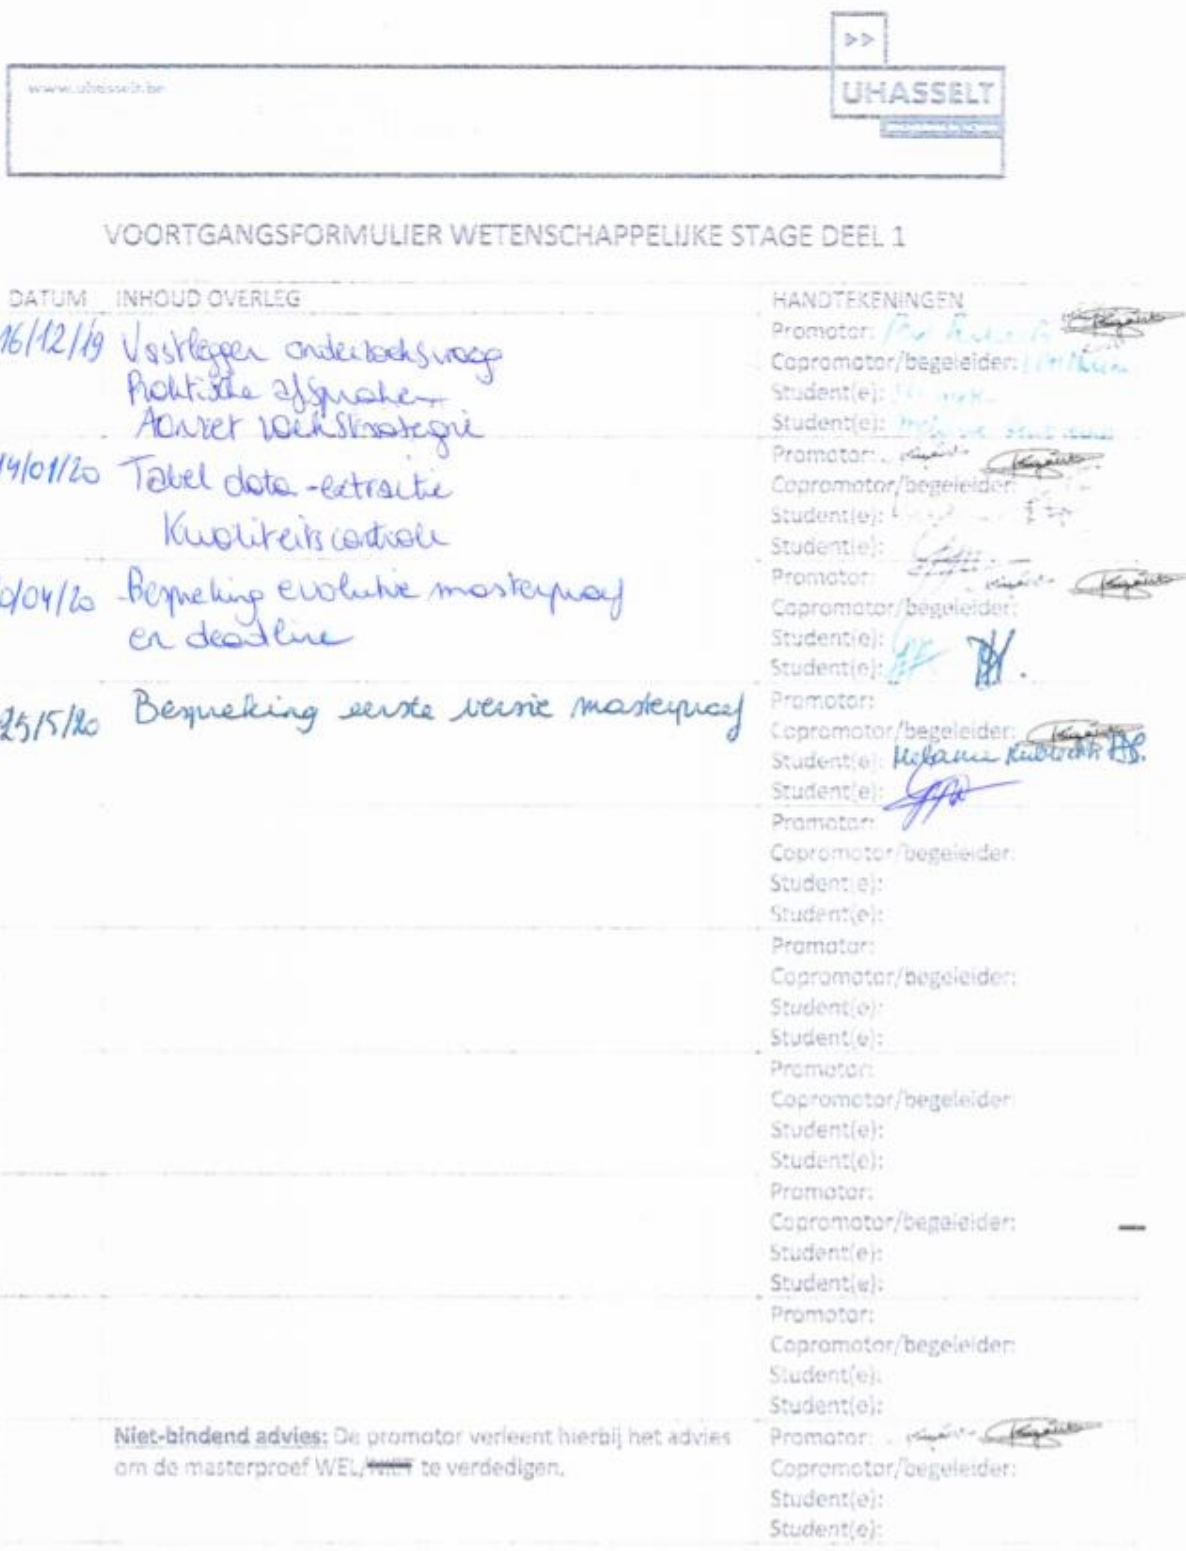 >>
www.uhasselt.be
UHASSELT
VOORTGANGSFORMULIER WETENSCHAPPELIJKE STAGE DEEL 1
DATUM INHOUD OVERLEG HANDTEKENINGEN
16/12/19 Vastleggen onderzoeksvraag Promotor:
Praktische afspraken Copromotor/begeleider:
Aanzet zoekstrategie Student(e):
Student(e):
14/01/20 Tabel data-extractie Promotor:
Kwaliteitscontrole Copromotor/begeleider:
Student(e):
Student(e):
0/04/20 Bespreking evolutie masterproef Promotor:
en deadline Copromotor/begeleider:
Student(e):
Student(e):
25/5/20 Bespreking eerste versie masterproef Promotor:
Copromotor/begeleider:
Student(e): Melanie
Student(e):
Promotor:
Copromotor/begeleider:
Student(e):
Student(e):
Promotor:
Copromotor/begeleider:
Student(e):
Student(e):
Promotor:
Copromotor/begeleider:
Student(e):
Student(e):
Promotor:
Copromotor/begeleider:
Student(e):
Student(e):
Promotor:
Copromotor/begeleider:
Student(e):
Student(e):
Niet-bindend advies: De promotor verleent hierbij het advies Promotor:
om de masterproef WEL/NIET te verdedigen. Copromotor/begeleider:
Student(e):
Student(e):